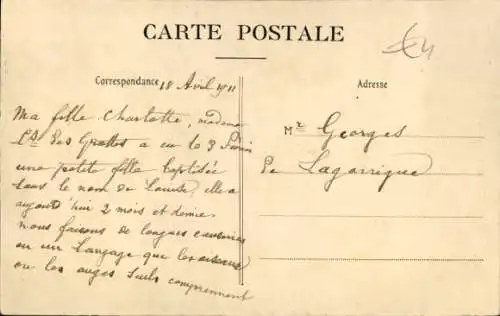 CARTE POSTALE
€4
Correspondance 18 Avril 1911
Adresse
Ma fille Charlotte, madame
Des Grottes a eu le 3
une petite fille baptisée
sous le nom de Louise, elle a
aujourd'hui 2 mois et demie.
nous faisons de longues causeries
en un langage que les oiseaux
ou les anges seuls comprennent
Mr Georges
de Lagarrigue